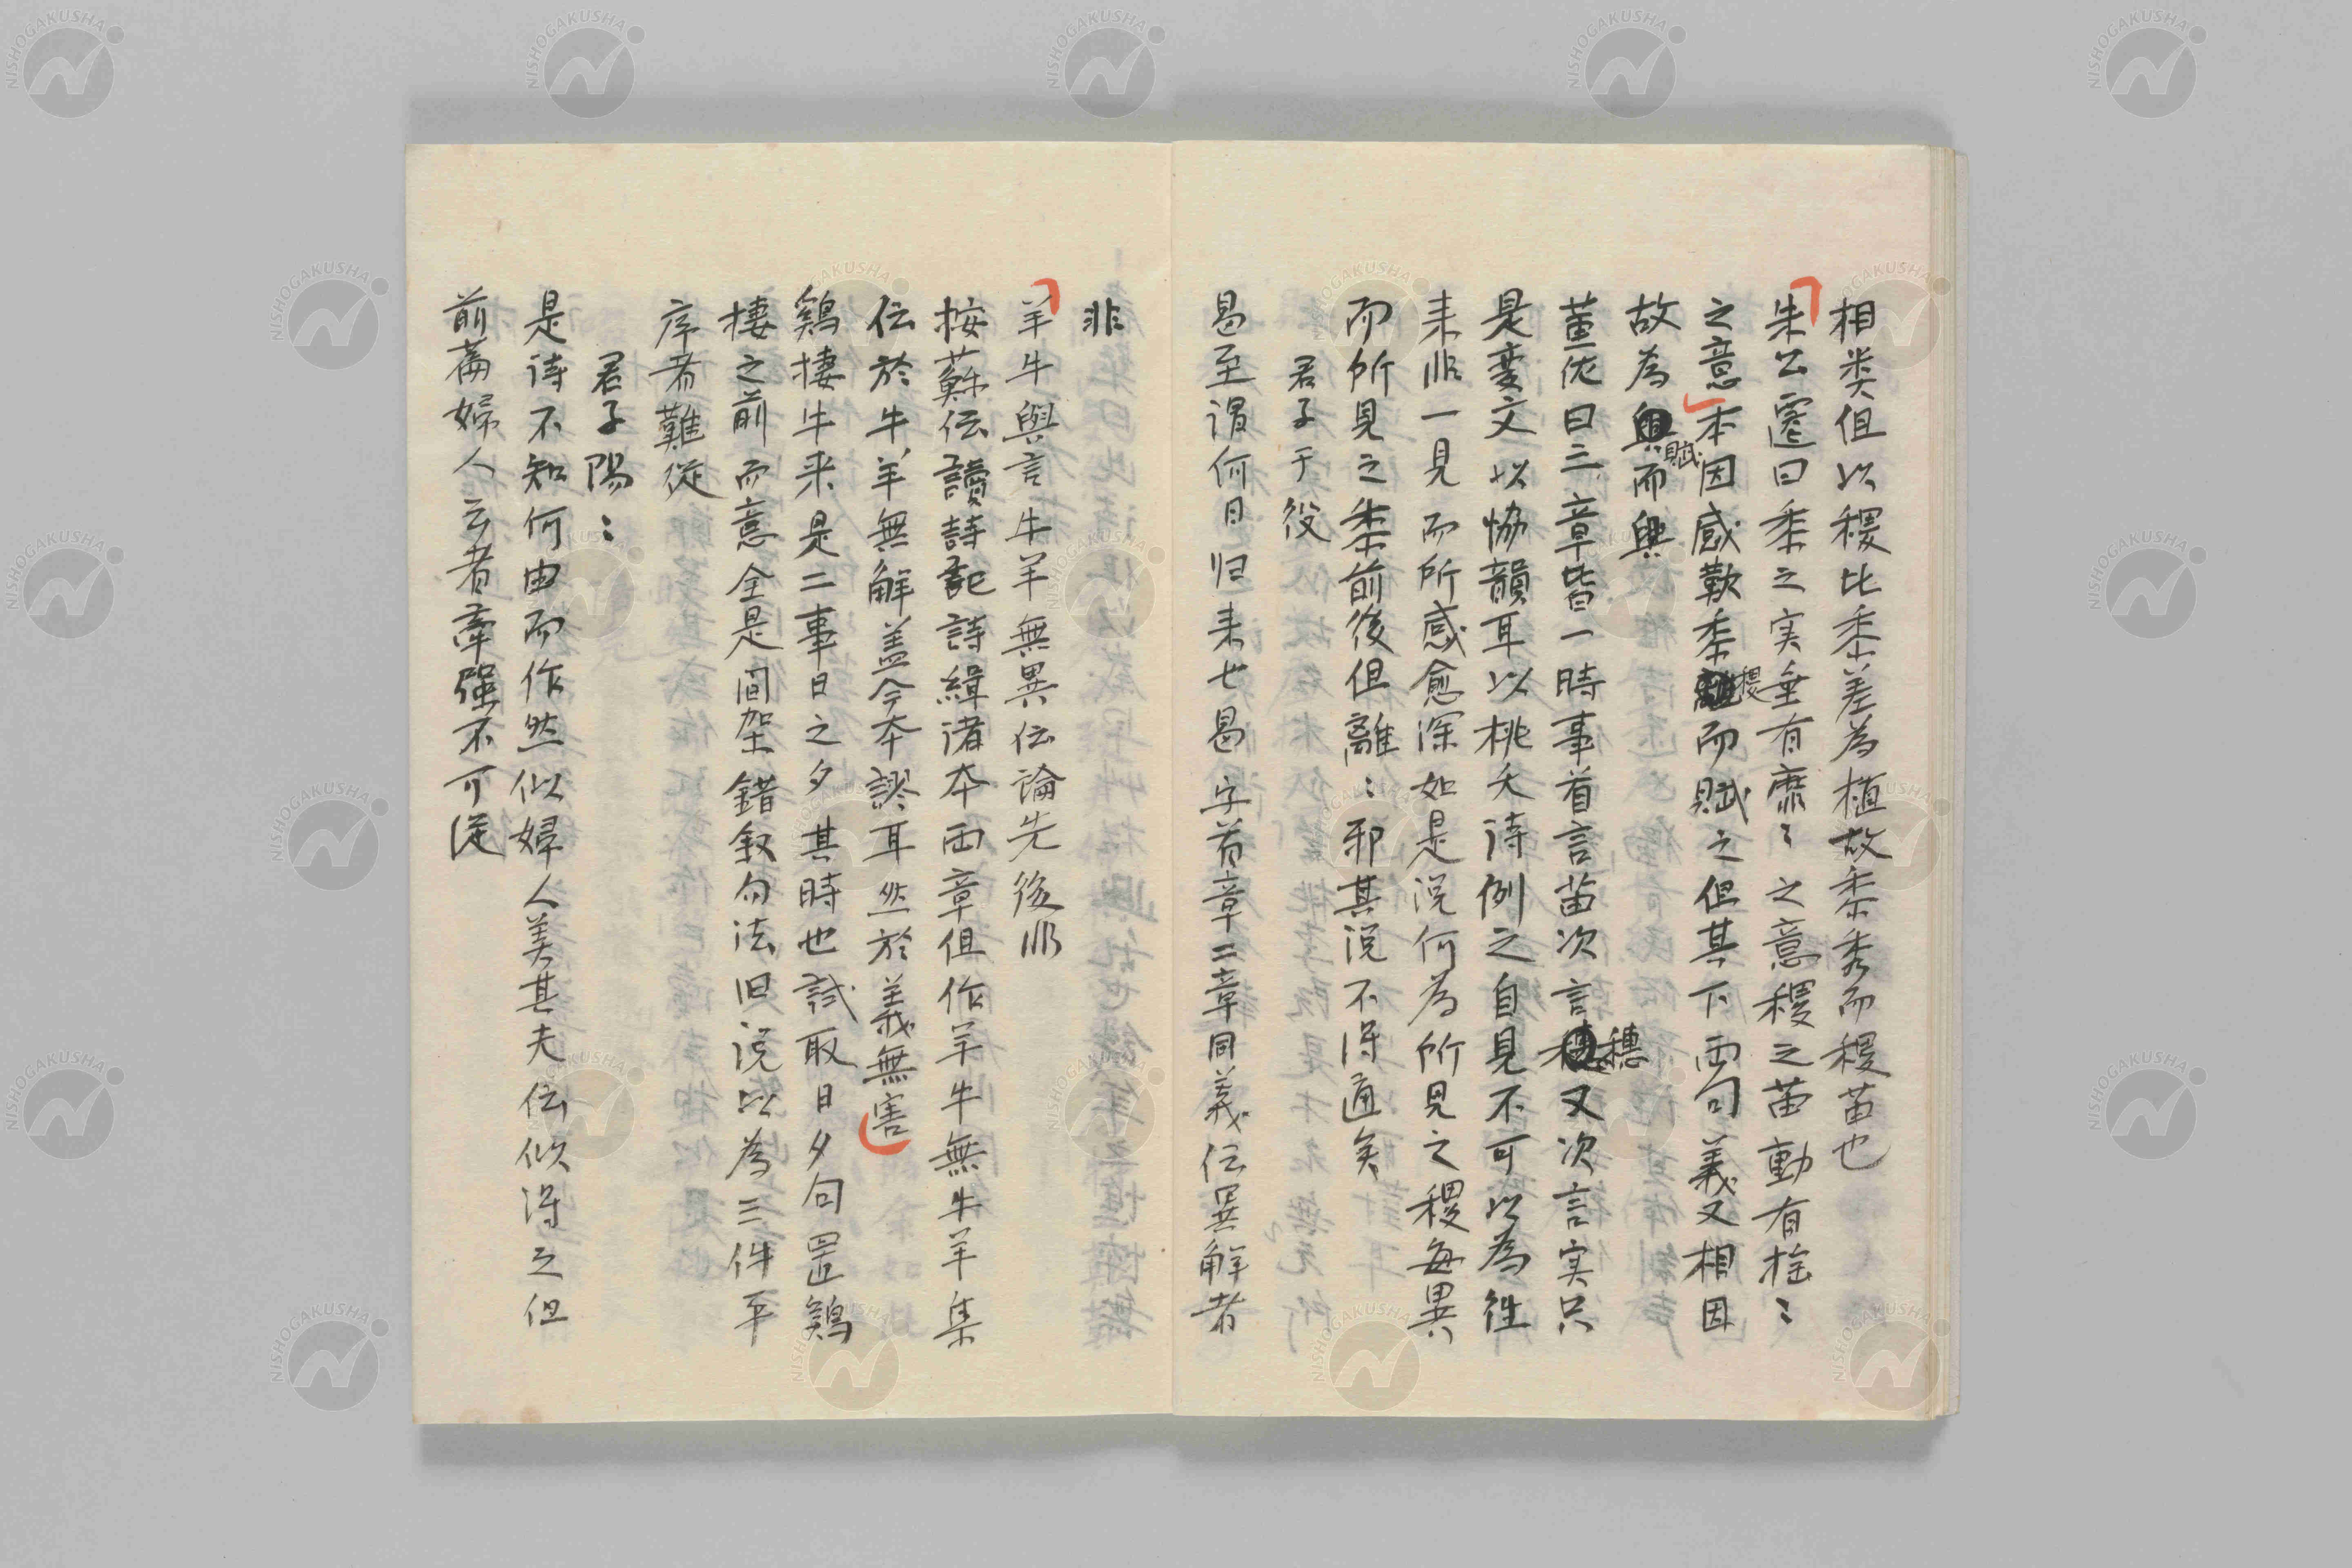 相类但以稷比黍差為植故黍秀而稷苗也
朱公遷曰黍之実垂有靡〻之意稷之苗動有揺〻
之意本因感歎黍稷而賦之但其下両句義又相因
故為賦而興
董氏曰三章皆一時事首言苗次言穗又次言実只
是変文以恊韻耳以桃夭詩例之自見不可以為往
来非一見而所感愈深如是説何為所見之稷每異
而所見之黍前後但離〻邪其説不得通矣
君子于役
曷至謂何日归来也曷字首章二章同義伝異解者
非
羊牛與言牛羊無異伝論先後非
按蘇伝讀詩記詩緝諸本両章但作羊牛無牛羊集
伝於牛羊無解盖今本謬耳然於義無害
鷄棲牛来是二事日之夕其時也試取日夕句置鷄
棲之前而意全是間架錯叙句法旧説以為三件平
序者難從
君子陽〻
是詩不知何由而作然似婦人美其夫伝似得之但
前篇婦人云者牽强不可従
NISHOGAKUSHA